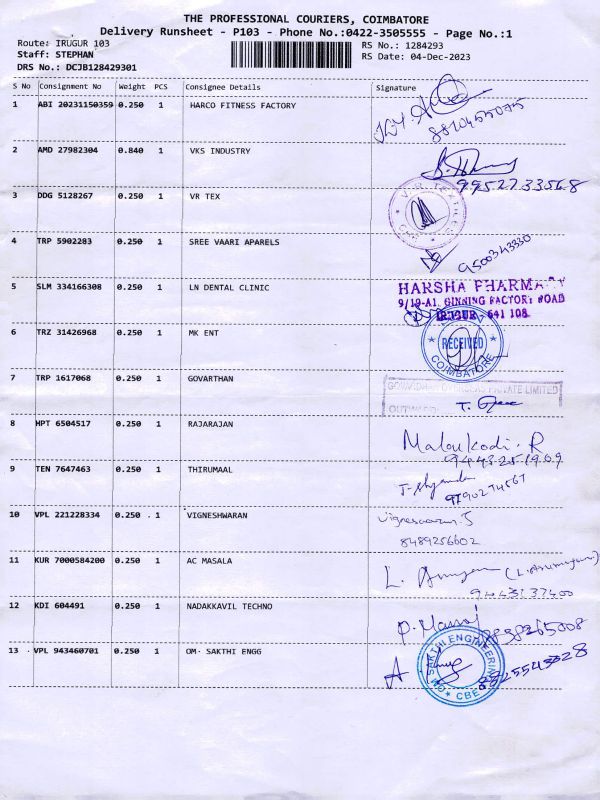 THE PROFESSIONAL COURIERS, COIMBATORE
Delivery Runsheet - P103 - Phone No.:0422-3505555 - Page No.:1
Route: IRUGUR 103
Staff: STEPHAN
DRS No.: DCJB128429301
RS No.: 1284293
RS Date: 04-Dec-2023
S No Consignment No Weight PCS Consignee Details Signature
1 ABI 20231150359 0.250 1 HARCO FITNESS FACTORY
8810455075
2 AMD 27982304 0.840 1 VKS INDUSTRY
9952733568
3 DDG 5128267 0.250 1 VR TEX
V.R. TEXTILES
CBE
4 TRP 5902283 0.250 1 SREE VAARI APARELS
9500343330
5 SLM 334166308 0.250 1 LN DENTAL CLINIC
HARSHA PHARMACY
9/19-A1, GINNING FACTORY ROAD
IRUGUR, 641 108.
6 TRZ 31426968 0.250 1 MK ENT
RECEIVED
COIMBATORE
7 TRP 1617068 0.250 1 GOVARTHAN
OVERSEAS PRIVATE LIMITED
OUTWARD
8 HPT 6504517 0.250 1 RAJARAJAN
Malarkodi. R
9443251909
9 TEN 7647463 0.250 1 THIRUMAAL
9790274567
10 VPL 221228334 0.250 1 VIGNESHWARAN
8489256602
11 KUR 7000584200 0.250 1 AC MASALA
9443137400
12 KDI 604491 0.250 1 NADAKKAVIL TECHNO
13 VPL 943460701 0.250 1 OM SAKTHI ENGG
OM SAKTHI ENGINEERING
CBE
8825543028